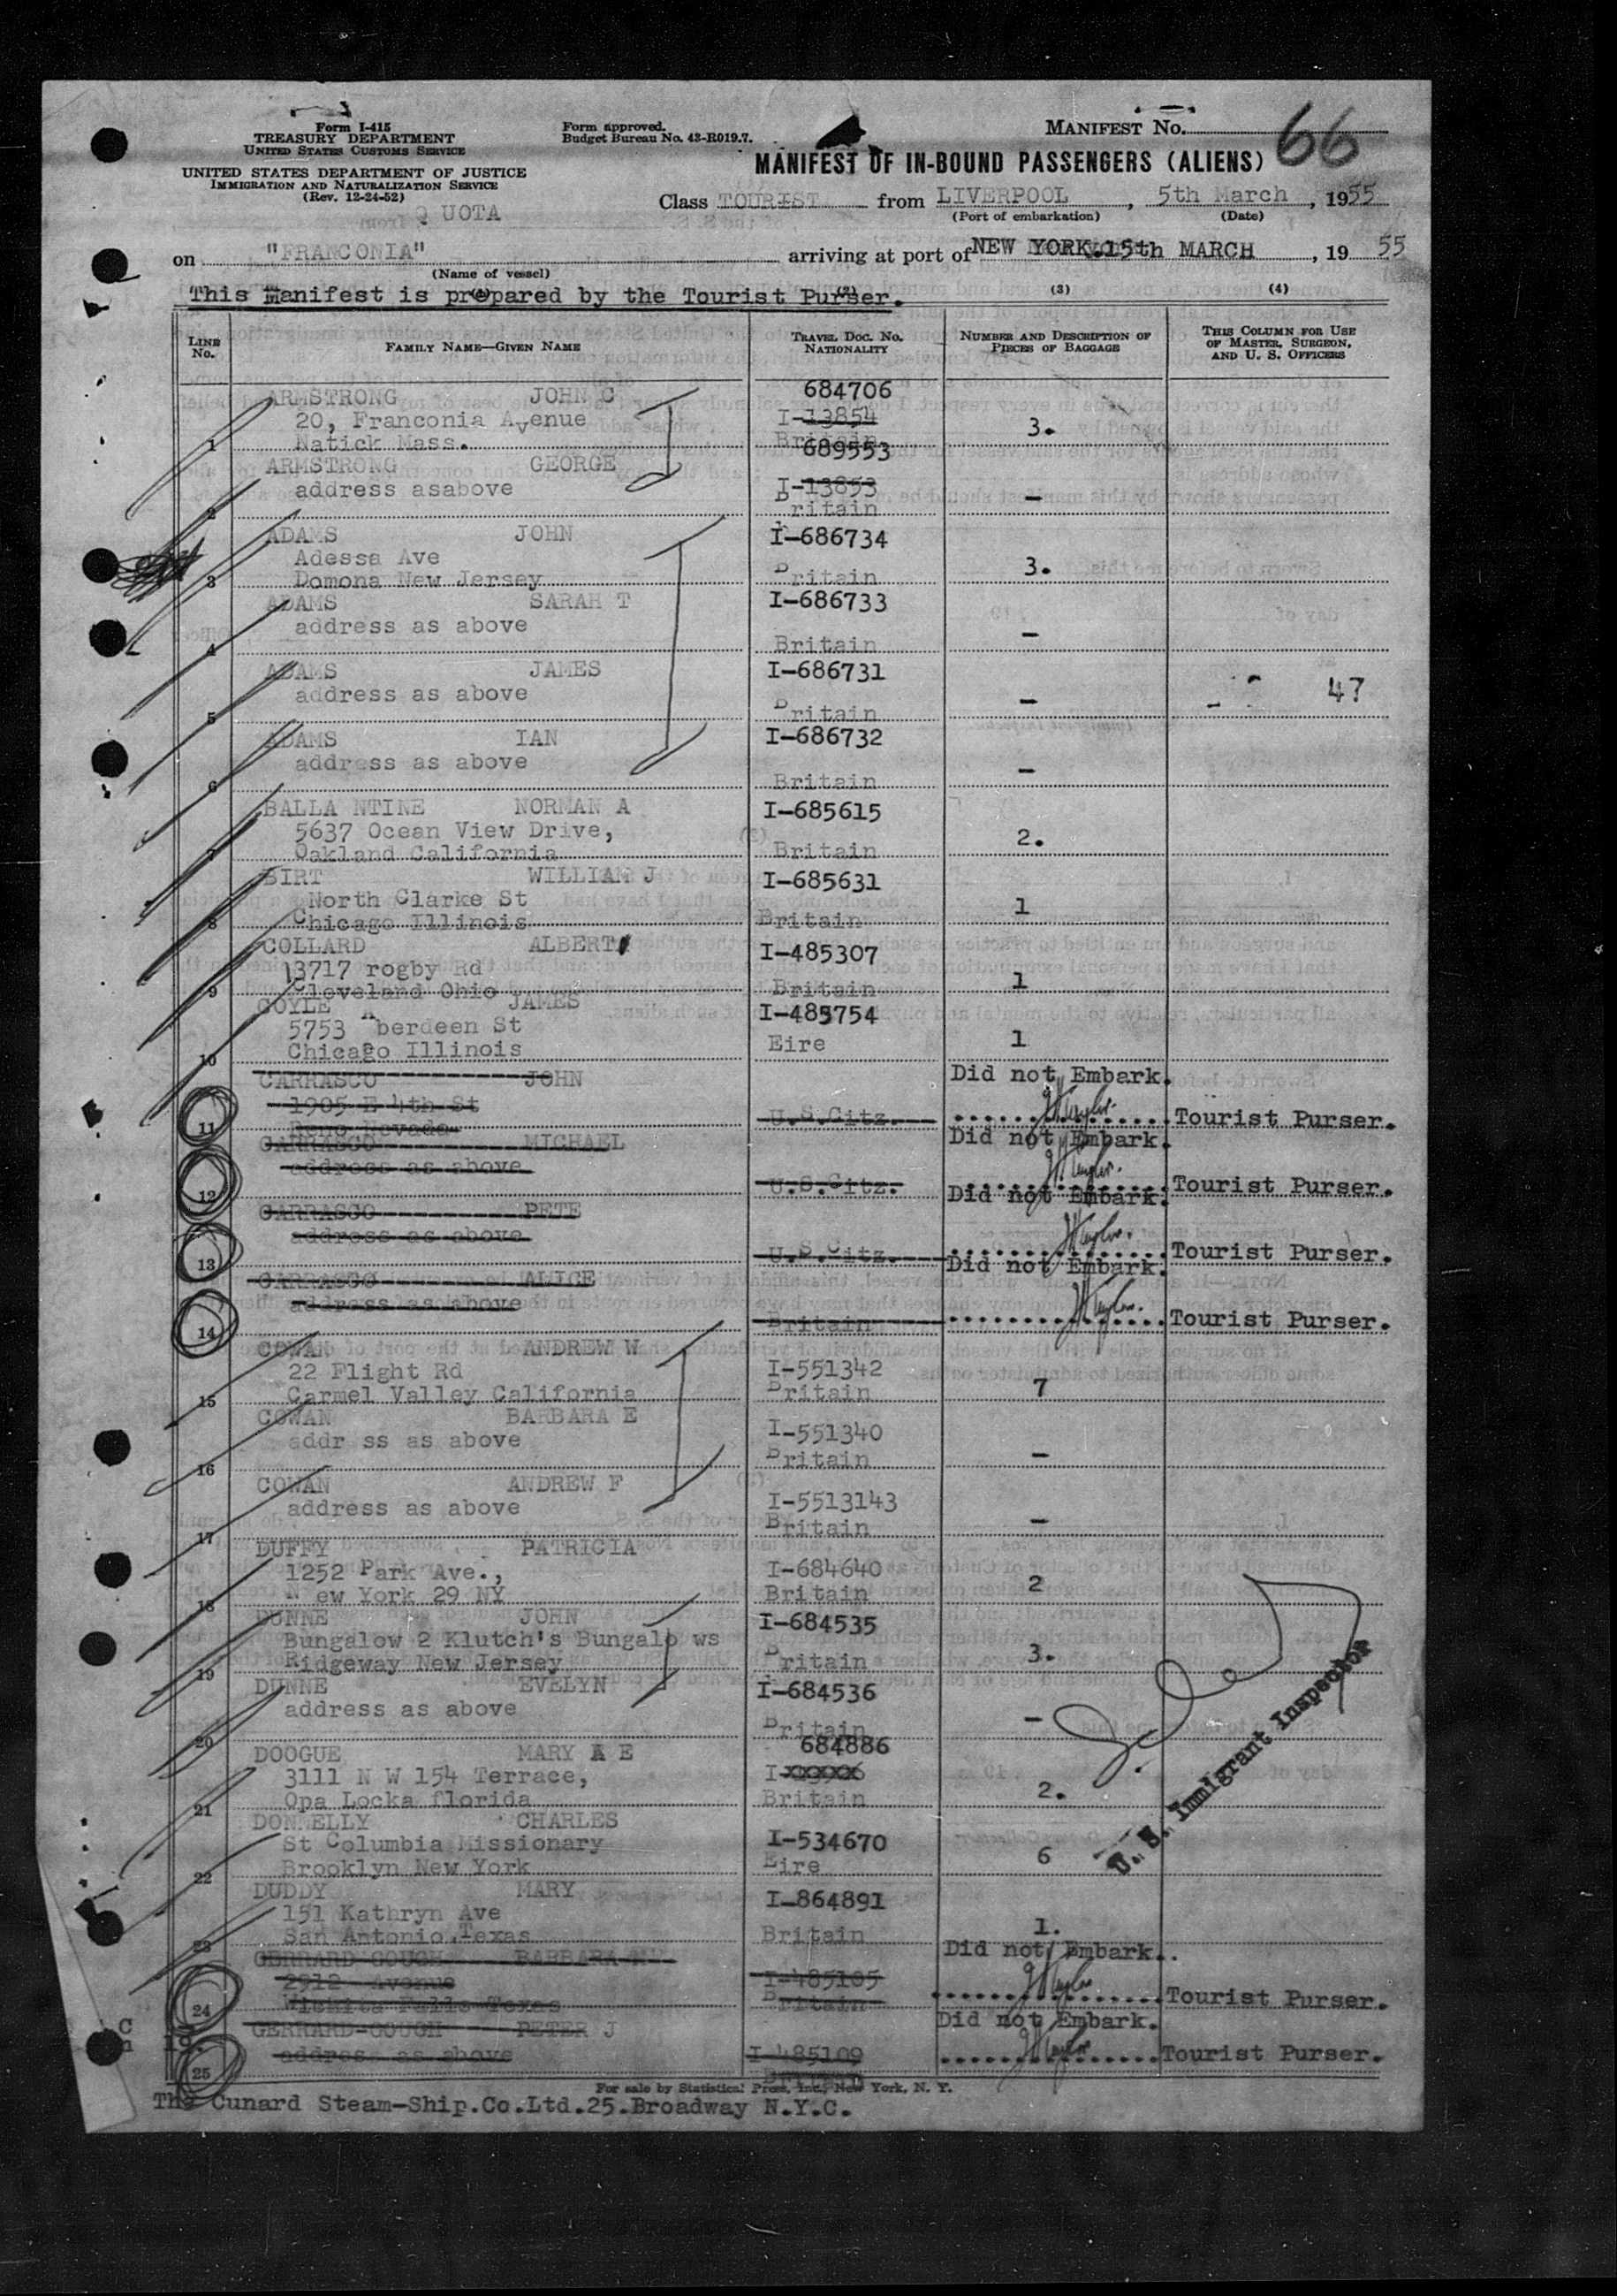 Form I-415
TREASURY DEPARTMENT
UNITED STATES CUSTOMS SERVICE
UNITED STATES DEPARTMENT OF JUSTICE
IMMIGRATION AND NATURALIZATION SERVICE
(Rev. 12-24-52)
Q UOTA
Form approved.
Budget Bureau No. 43-R019.7.
MANIFEST No. 66
MANIFEST OF IN-BOUND PASSENGERS (ALIENS)
Class TOURIST from LIVERPOOL, 5th March, 1955
(Port of embarkation) (Date)
on "FRANCONIA" arriving at port of NEW YORK.15th MARCH, 19 55
(Name of vessel)
This manifest is prepared by the Tourist Purser.
(1) (2) (3) (4)
LINE No. FAMILY NAME—GIVEN NAME TRAVEL DOC. NO. NATIONALITY NUMBER AND DESCRIPTION OF PIECES OF BAGGAGE THIS COLUMN FOR USE OF MASTER, SURGEON, AND U. S. OFFICERS
ARMSTRONG JOHN C 684706
20, Franconia Avenue I-13854 3.
1 Natick Mass. Britain
ARMSTRONG GEORGE 689553
address asabove I-13853 -
2 Britain
ADAMS JOHN I-686734
Adessa Ave 3.
3 Domona New Jersey Britain
ADAMS SARAH T I-686733
address as above -
4 Britain
ADAMS JAMES I-686731
address as above - 47
5 Britain
ADAMS IAN I-686732
address as above -
6 Britain
BALLA NTINE NORMAN A I-685615
5637 Ocean View Drive, 2.
7 Oakland California Britain
BIRT WILLIAM J I-685631
North Clarke St 1
8 Chicago Illinois Britain
COLLARD ALBERT I-485307
13717 rogby Rd 1
9 Cleveland Ohio Britain
COYLE JAMES I-485754
5753 Aberdeen St Eire 1
10 Chicago Illinois
CARRASCO JOHN Did not Embark.
1905 E 4th St
11 Reno Nevada U.S.Citz. Tourist Purser.
CARRASCO MICHAEL Did not Embark.
address as above
12 U.S.Citz. Tourist Purser.
CARRASCO PETE Did not Embark.
address as above
13 U.S.Citz. Tourist Purser.
CARRASCO ALICE Did not Embark.
address as above
14 Britain Tourist Purser.
COWAN ANDREW W
22 Flight Rd I-551342 7
15 Carmel Valley California Britain
COWAN BARBARA E
addr ss as above I-551340 -
16 Britain
COWAN ANDREW F
address as above I-5513143 -
17 Britain
DUFFY PATRICIA
1252 Park Ave., I-684640 2
18 New York 29 NY Britain
DUNNE JOHN I-684535
Bungalow 2 Klutch's Bungalo ws 3.
19 Ridgeway New Jersey Britain
DUNNE EVELYN I-684536
address as above -
20 Britain
DOOGUE MARY A E 684886
3111 N W 154 Terrace, 2.
21 Opa Locka florida Britain
DONNELLY CHARLES
St Columbia Missionary I-534670 6
22 Brooklyn New York Eire
DUDDY MARY I-864891
151 Kathryn Ave 1.
23 San Antonio.Texas Britain
GERRARD-GOUGH BARBARA Did not Embark..
2912 Avenue I-485105
24 Wichita Falls Texas Britain Tourist Purser.
GERRARD-GOUGH PETER J Did not Embark.
address as above I-485109 Tourist Purser.
25 Britain
U. S. Immigrant Inspector
For sale by Statistical Press, Inc., New York, N. Y.
The Cunard Steam-Ship.Co.Ltd.25.Broadway N.Y.C.